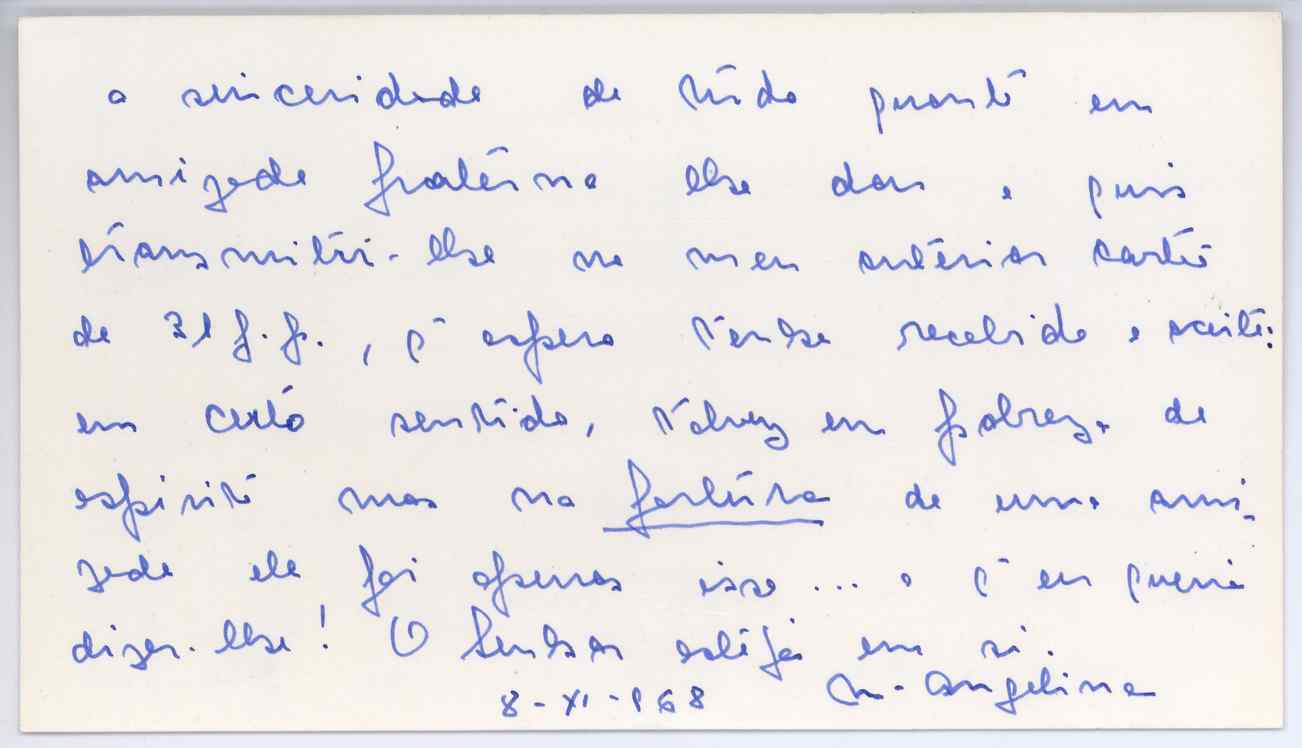 a sinceridade de tudo quanto em
amizade fraterna lhe dou e quis
transmitir-lhe no meu anterior cartão
de 31 p.p., q̃ espero tenha recebido e aceite:
em certo sentido, talvez em pobreza de
espirito mas na fartura de uma ami-
zade ele foi apenas isso... o q̃ eu queria
dizer-lhe! O Senhor esteja em si.
8-XI-968 M. Angelina